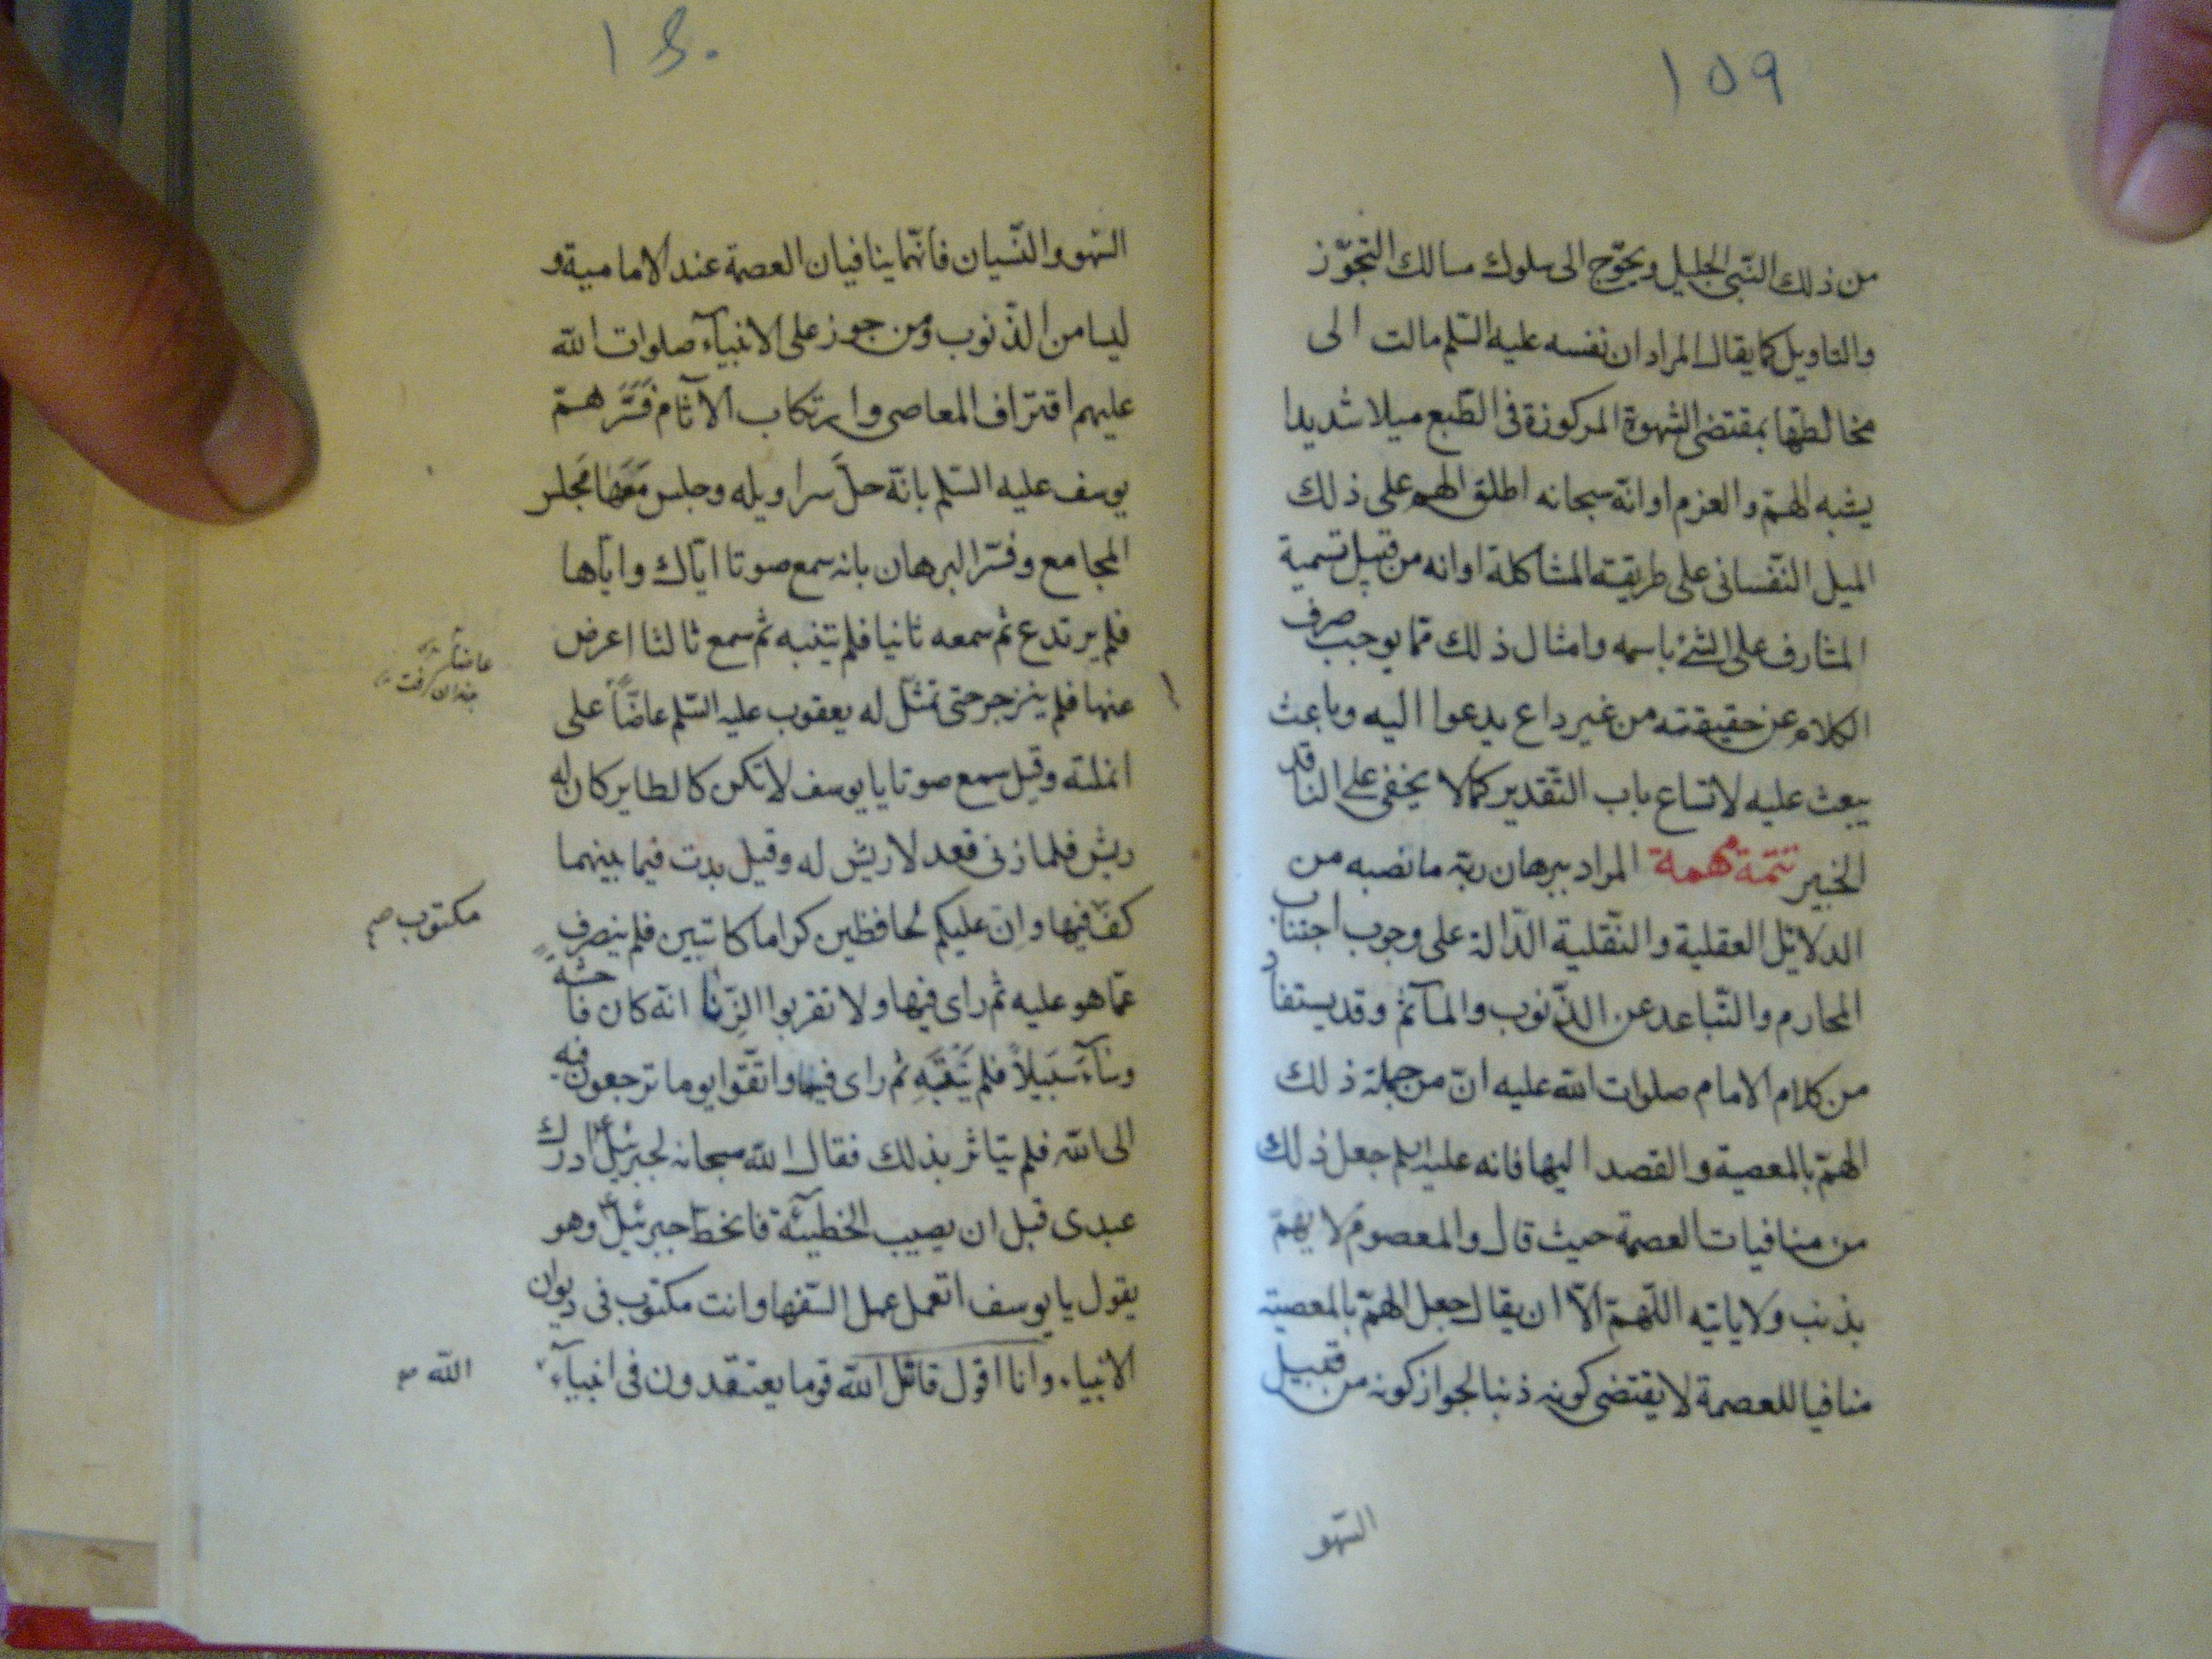 ١٥٩
من ذلك النّبى الجليل ويحوّج الى سلوك مسالك التجوّز
والتاويل كما يقال المراد ان نفسه عليه السّلم مالت الى
مخالطتها بمقتضى الشهوة المركوزة فى الطّبع ميلا شديدا
يشبه الهمّ والعزم او انّه سبحانه اطلق الهم على ذلك
الميل النّفسانى على طريقة المشاكلة او انه من قبيل تسمية
المشارف على الشئ باسمه وامثال ذلك ممّا يوجب صرف
الكلام عن حقيقته من غير داع يدعوا اليه وباعث
يبعث عليه لاتساع باب التّقدير كما لا يخفى على الناقد
الخبير تتمّة مهمة المراد ببرهان ربّه ما نصبه من
الدلايل العقلية والنّقلية الدّالة على وجوب اجتناب
المحارم والتّباعد عن الذّنوب والمآثم وقد يستفاد
من كلام الامام صلوات الله عليه انّ من جملة ذلك
الهمّ بالمعصية والقصد اليها فانه عليه السلم جعل ذلك
من منافيات العصمة حيث قال والمعصوم لا يهمّ
بذنب ولا ياتيه اللّهمّ الّا ان يقال جعل الهمّ بالمعصية
منافيا للعصمة لا يقتضى كونه ذنبا لجواز كونه من قبيل
السّهو
١٦٠
السّهو والنّسيان فانّهما ينافيان العصمة عند الامامية و
ليسا من الذّنوب ومن جوز على الانبيآء صلوات الله
عليهم اقتراف المعاصى وارتكاب الآثام فَسَّرَ همّ
يوسف عليه السّلم بانّه حلّ سراويله وجلس مَعَهَا مَجلس
المجامع وفسّر البرهان بانه سمع صوتا ايّاك وايّاها
فلم يرتدع ثم سمعه ثانيا فلم يتنبه ثم سمع ثالثا اعرض
عنها فلم ينزجر حتى تمثّل له يعقوب عليه السّلم عاضّاً على
انملته وقيل سمع صوتا يا يوسف لا تكن كالطاير كان له
ريش فلما زنى قعد لا ريش له وقيل بدت فيما بينهما
كفّ فيها وانّ عليكم لحافظين كراما كاتبين فلم ينصرف
عمّا هو عليه ثم راى فيها ولا تقربوا الزّنا انه كان فاحشةً
وسآءَ سَبيلاً فلم يَنْتَبِه ثم راى فيها واتّقوا يوما ترجعون فيه
الى الله فلم يتاثر بذلك فقال الله سبحانه لجبرئيل ادرك
عبدى قبل ان يصيب الخطيئة فانحطّ جبرئيل وهو
يقول يا يوسف اتعمل عمل السّفها وانت مكتوب فى ديوان
الانبياء وانا اقول قاتل الله قوما يعتقدون فى انبيآء
مكتوب صح
الله